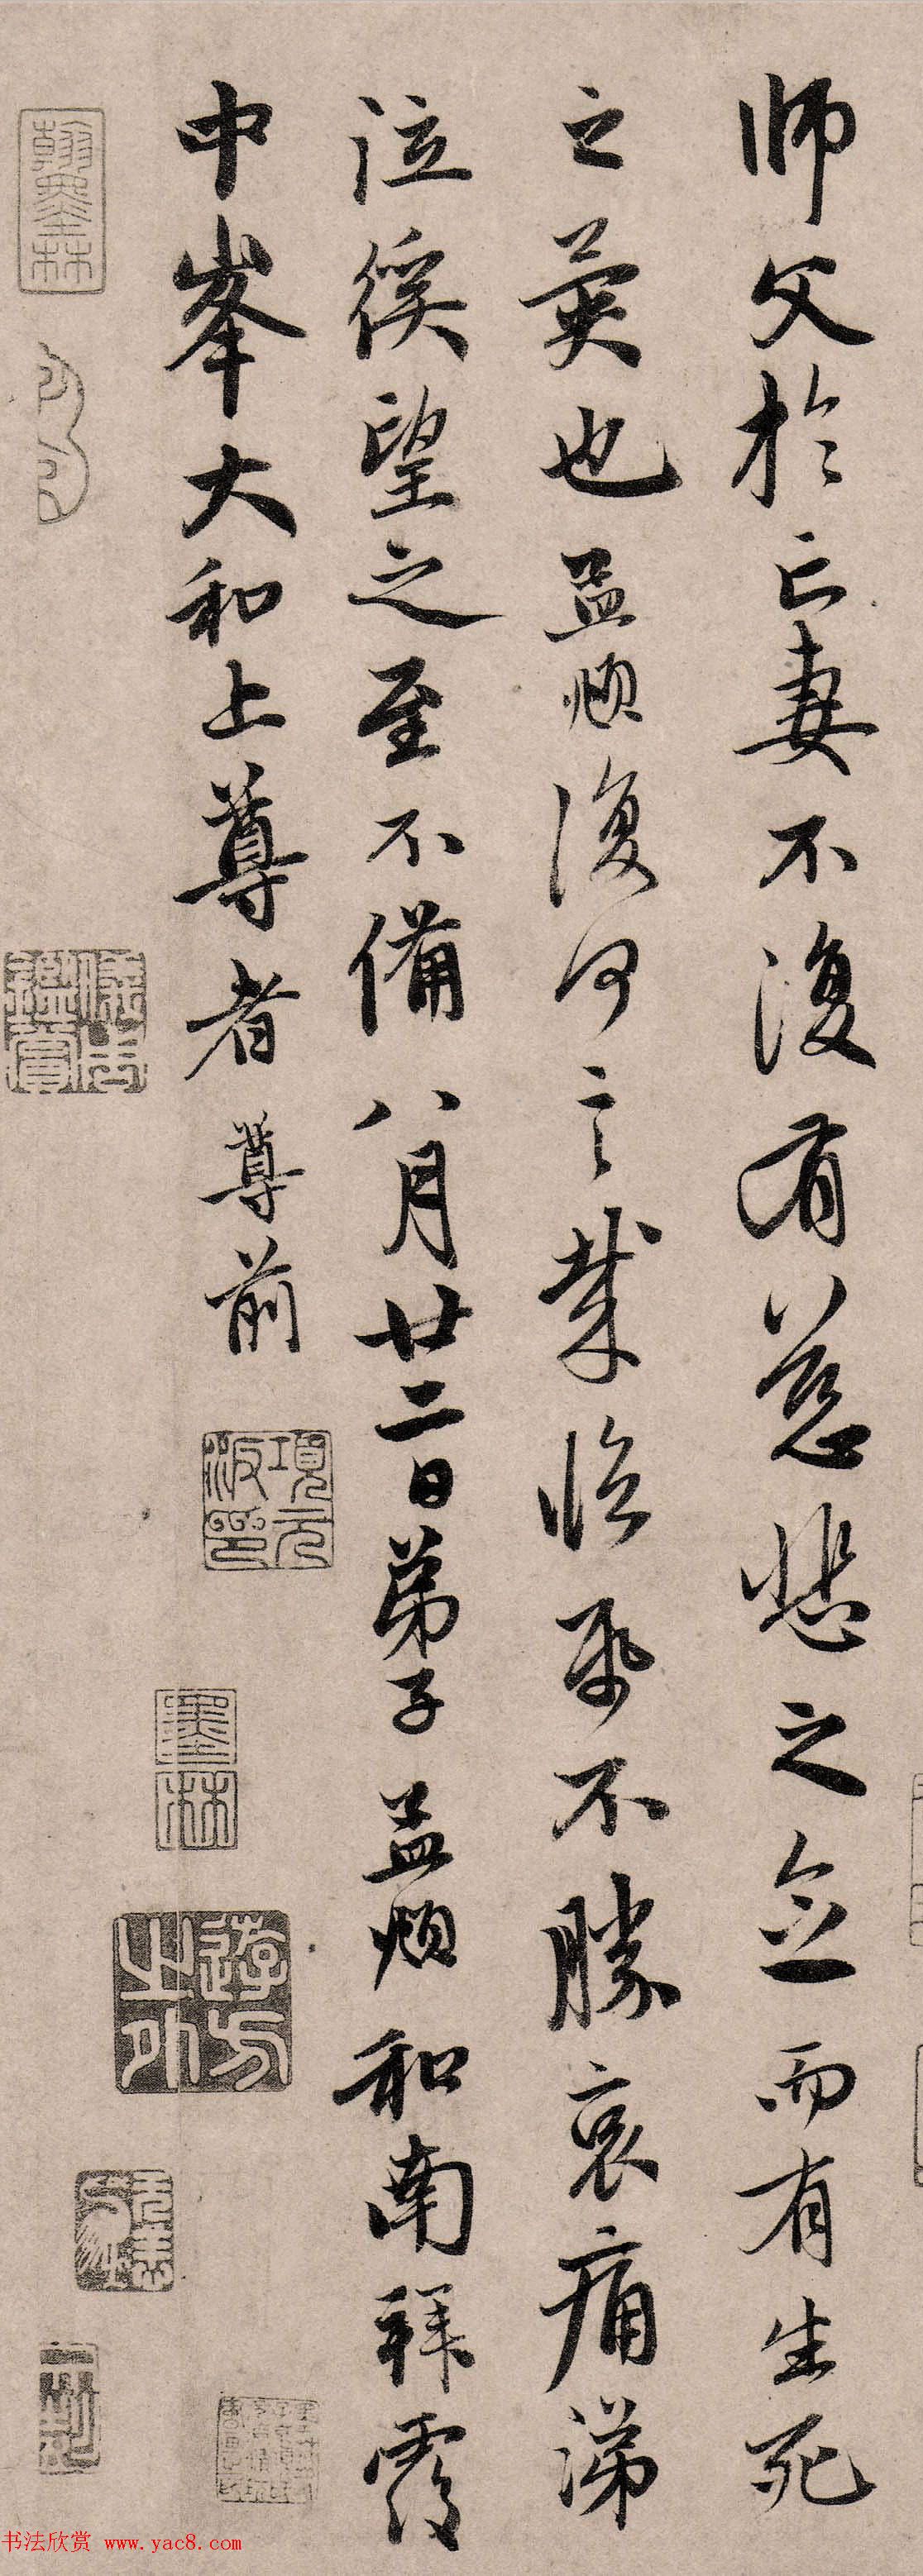 師父於亡妻不復有慈悲之念而有生死
之異也孟頫復何言哉臨帋不勝哀痛涕
泣徯望之至不備 八月廿二日弟子孟頫和南拜覆
中峯大和上尊者 尊前
項元汴印
墨林
遊方之外
翰墨林
书法欣赏 www.yac8.com